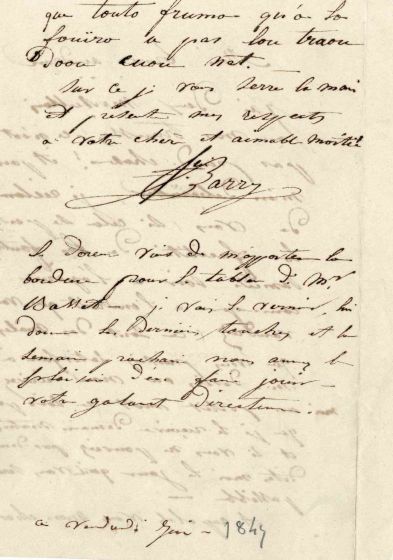 que touto frumo qu'a la
fouiro a pas lou traou
doou cuou net.
Sur ce je vous serre la main
et présente mes respects
à votre cher et aimable
Barry
le doreur vient de m'apporter la
bordure pour le tableau de Mr
Basset je vais le vernir, lui
donner les dernieres touches et la
semaine prochaine nous aurons le
plaisir d'en jouir
votre galant Directeur.
a vendredi 1849